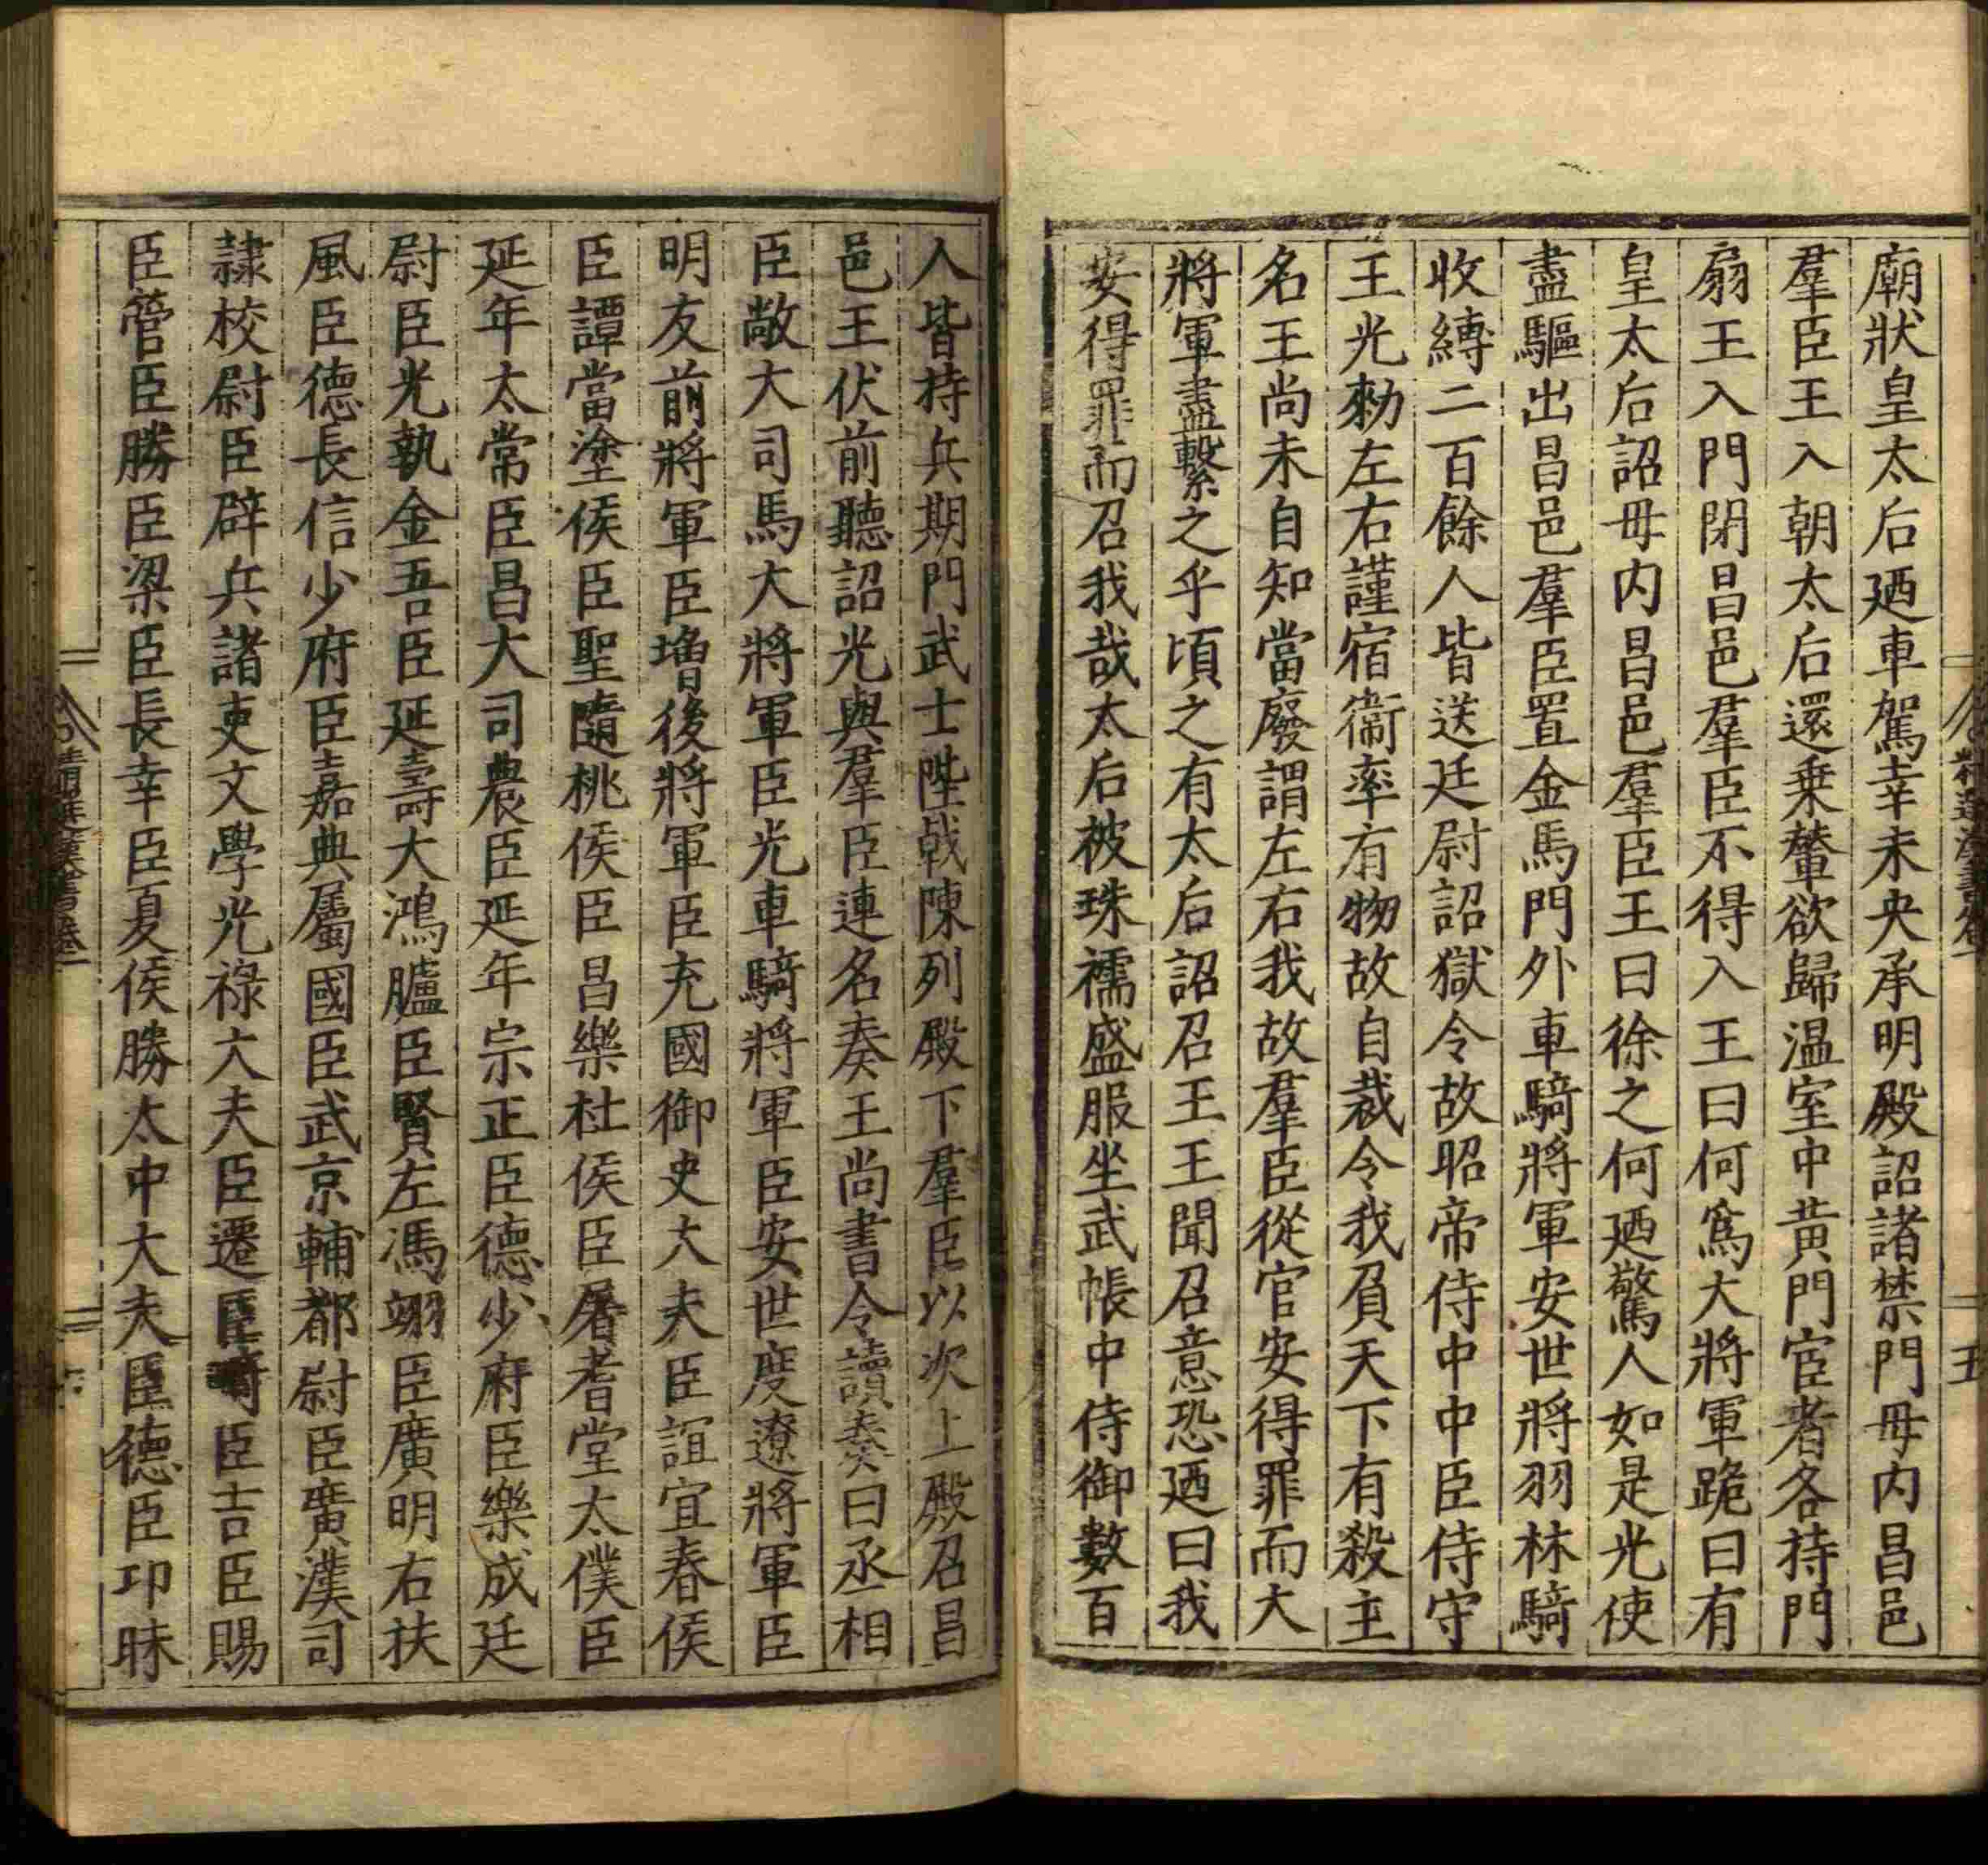 廟狀皇太后廼車駕幸未央承明殿詔諸禁門毋内昌邑
羣臣王入朝太后還乗輦欲歸温室中黄門宦者各持門
扇王入門閉昌邑羣臣不得入王曰何爲大將軍跪曰有
皇太后詔毋内昌邑羣臣王曰徐之何廼驚人如是光使
盡驅出昌邑羣臣置金馬門外車騎將軍安世將羽林騎
收縛二百餘人皆送廷尉詔獄令故昭帝侍中中臣侍守
王光勑左右謹宿衞率有物故自裁令我負天下有殺主
名王尚未自知當廢謂左右我故羣臣從官安得罪而大
將軍盡繫之乎頃之有太后詔召王王聞召意恐廼曰我
安得罪而召我哉太后被珠襦盛服坐武帳中侍御數百
人皆持兵期門武士陛戟陳列殿下羣臣以次上殿召昌
邑王伏前聽詔光與羣臣連名奏王尚書令讀奏曰丞相
臣敞大司馬大將軍臣光車騎將軍臣安世度遼將軍臣
明友前將軍臣增後將軍臣充國御史大夫臣誼宜春侯
臣譚當塗侯臣聖隨桃侯臣昌樂杜侯臣屠耆堂太僕臣
延年太常臣昌大司農臣延年宗正臣德少府臣樂成廷
尉臣光執金吾臣延壽大鴻臚臣賢左馮翊臣廣明右扶
風臣德長信少府臣嘉典屬國臣武京輔都尉臣廣漢司
隷校尉臣辟兵諸吏文學光祿大夫臣遷臣畸臣吉臣賜
臣管臣勝臣梁臣長幸臣夏侯勝太中大夫臣德臣卬昧
五
精選漢書卷一